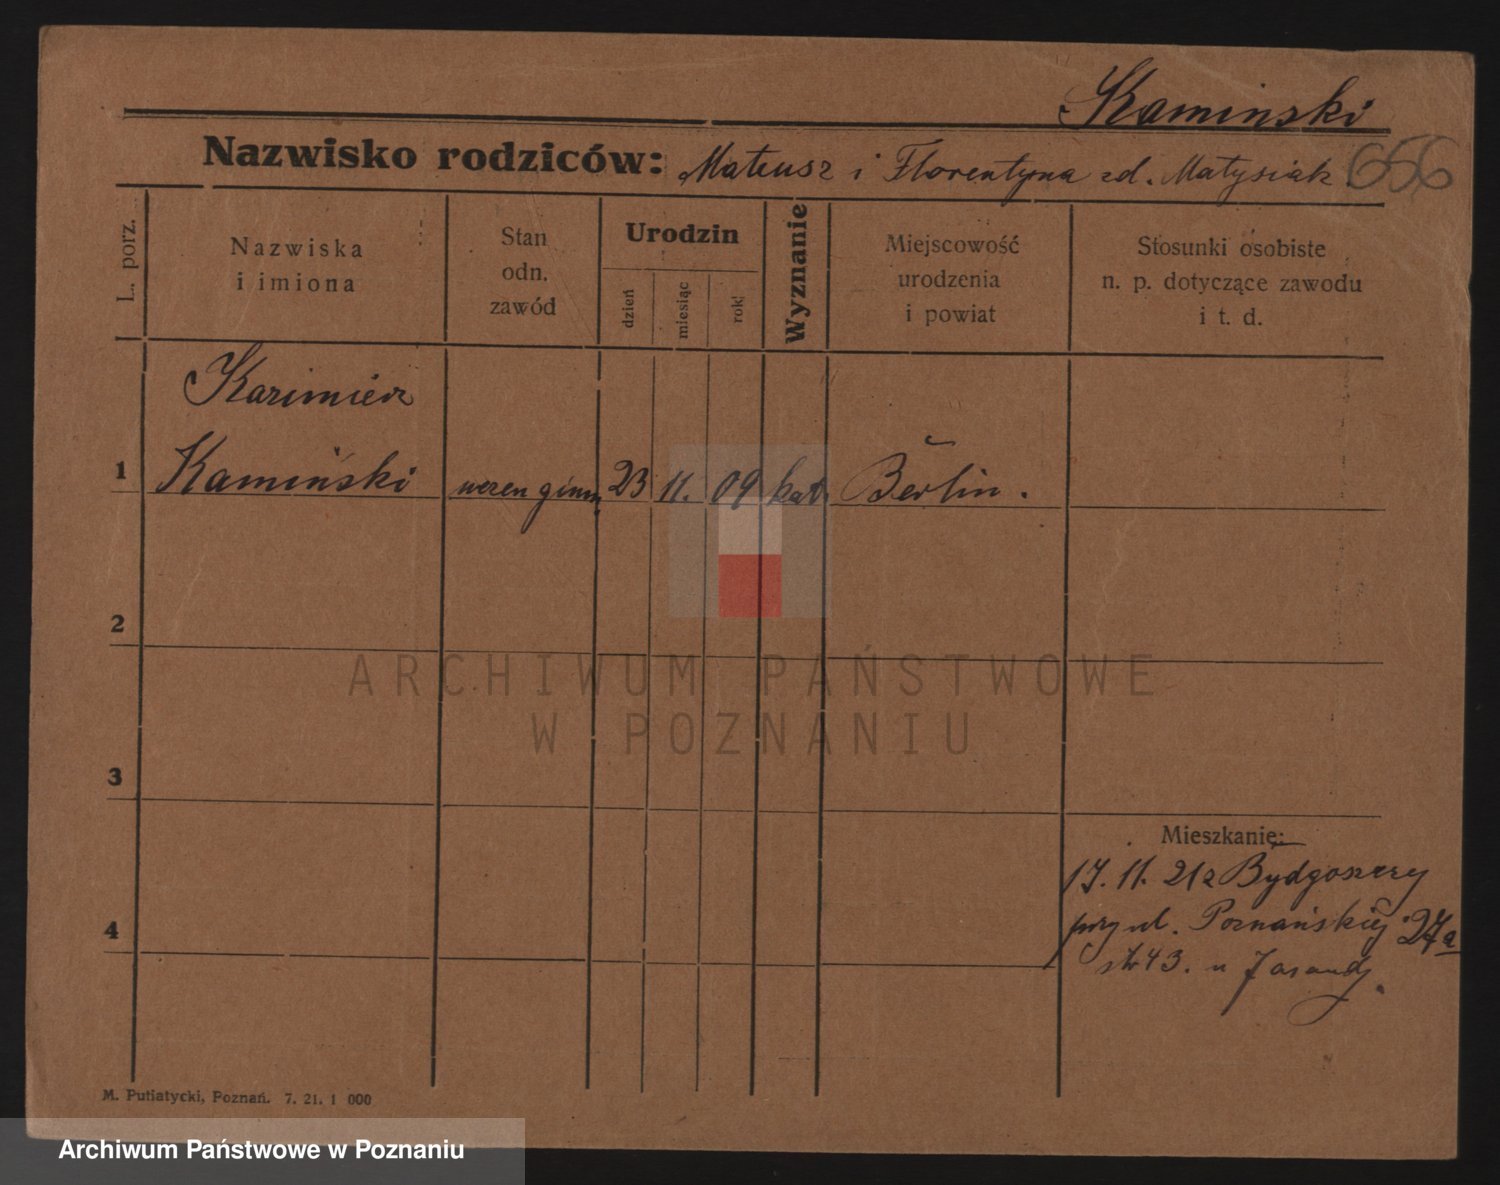 Kaminski
Nazwisko rodziców: Mateusz i Florentyna zd. Matysiak 656
L. porz.
Nazwiska
i imiona
Stan
odn.
zawód
Urodzin
dzień
miesiąc
rok
Wyznanie
Miejscowość
urodzenia
i powiat
Stosunki osobiste
n. p. dotyczące zawodu
i t. d.
Kazimierz
1 Kamiński uczen gimn. 23 11. 09 kat. Berlin.
2
3
4
Mieszkanie:
17. 11. 21 z Bydgoszczy
przy ul. Poznańskiej 27a
43. u
M. Putiatycki, Poznań. 7. 21. 1 000
ARCHIWUM PAŃSTWOWE
W POZNANIU
Archiwum Państwowe w Poznaniu